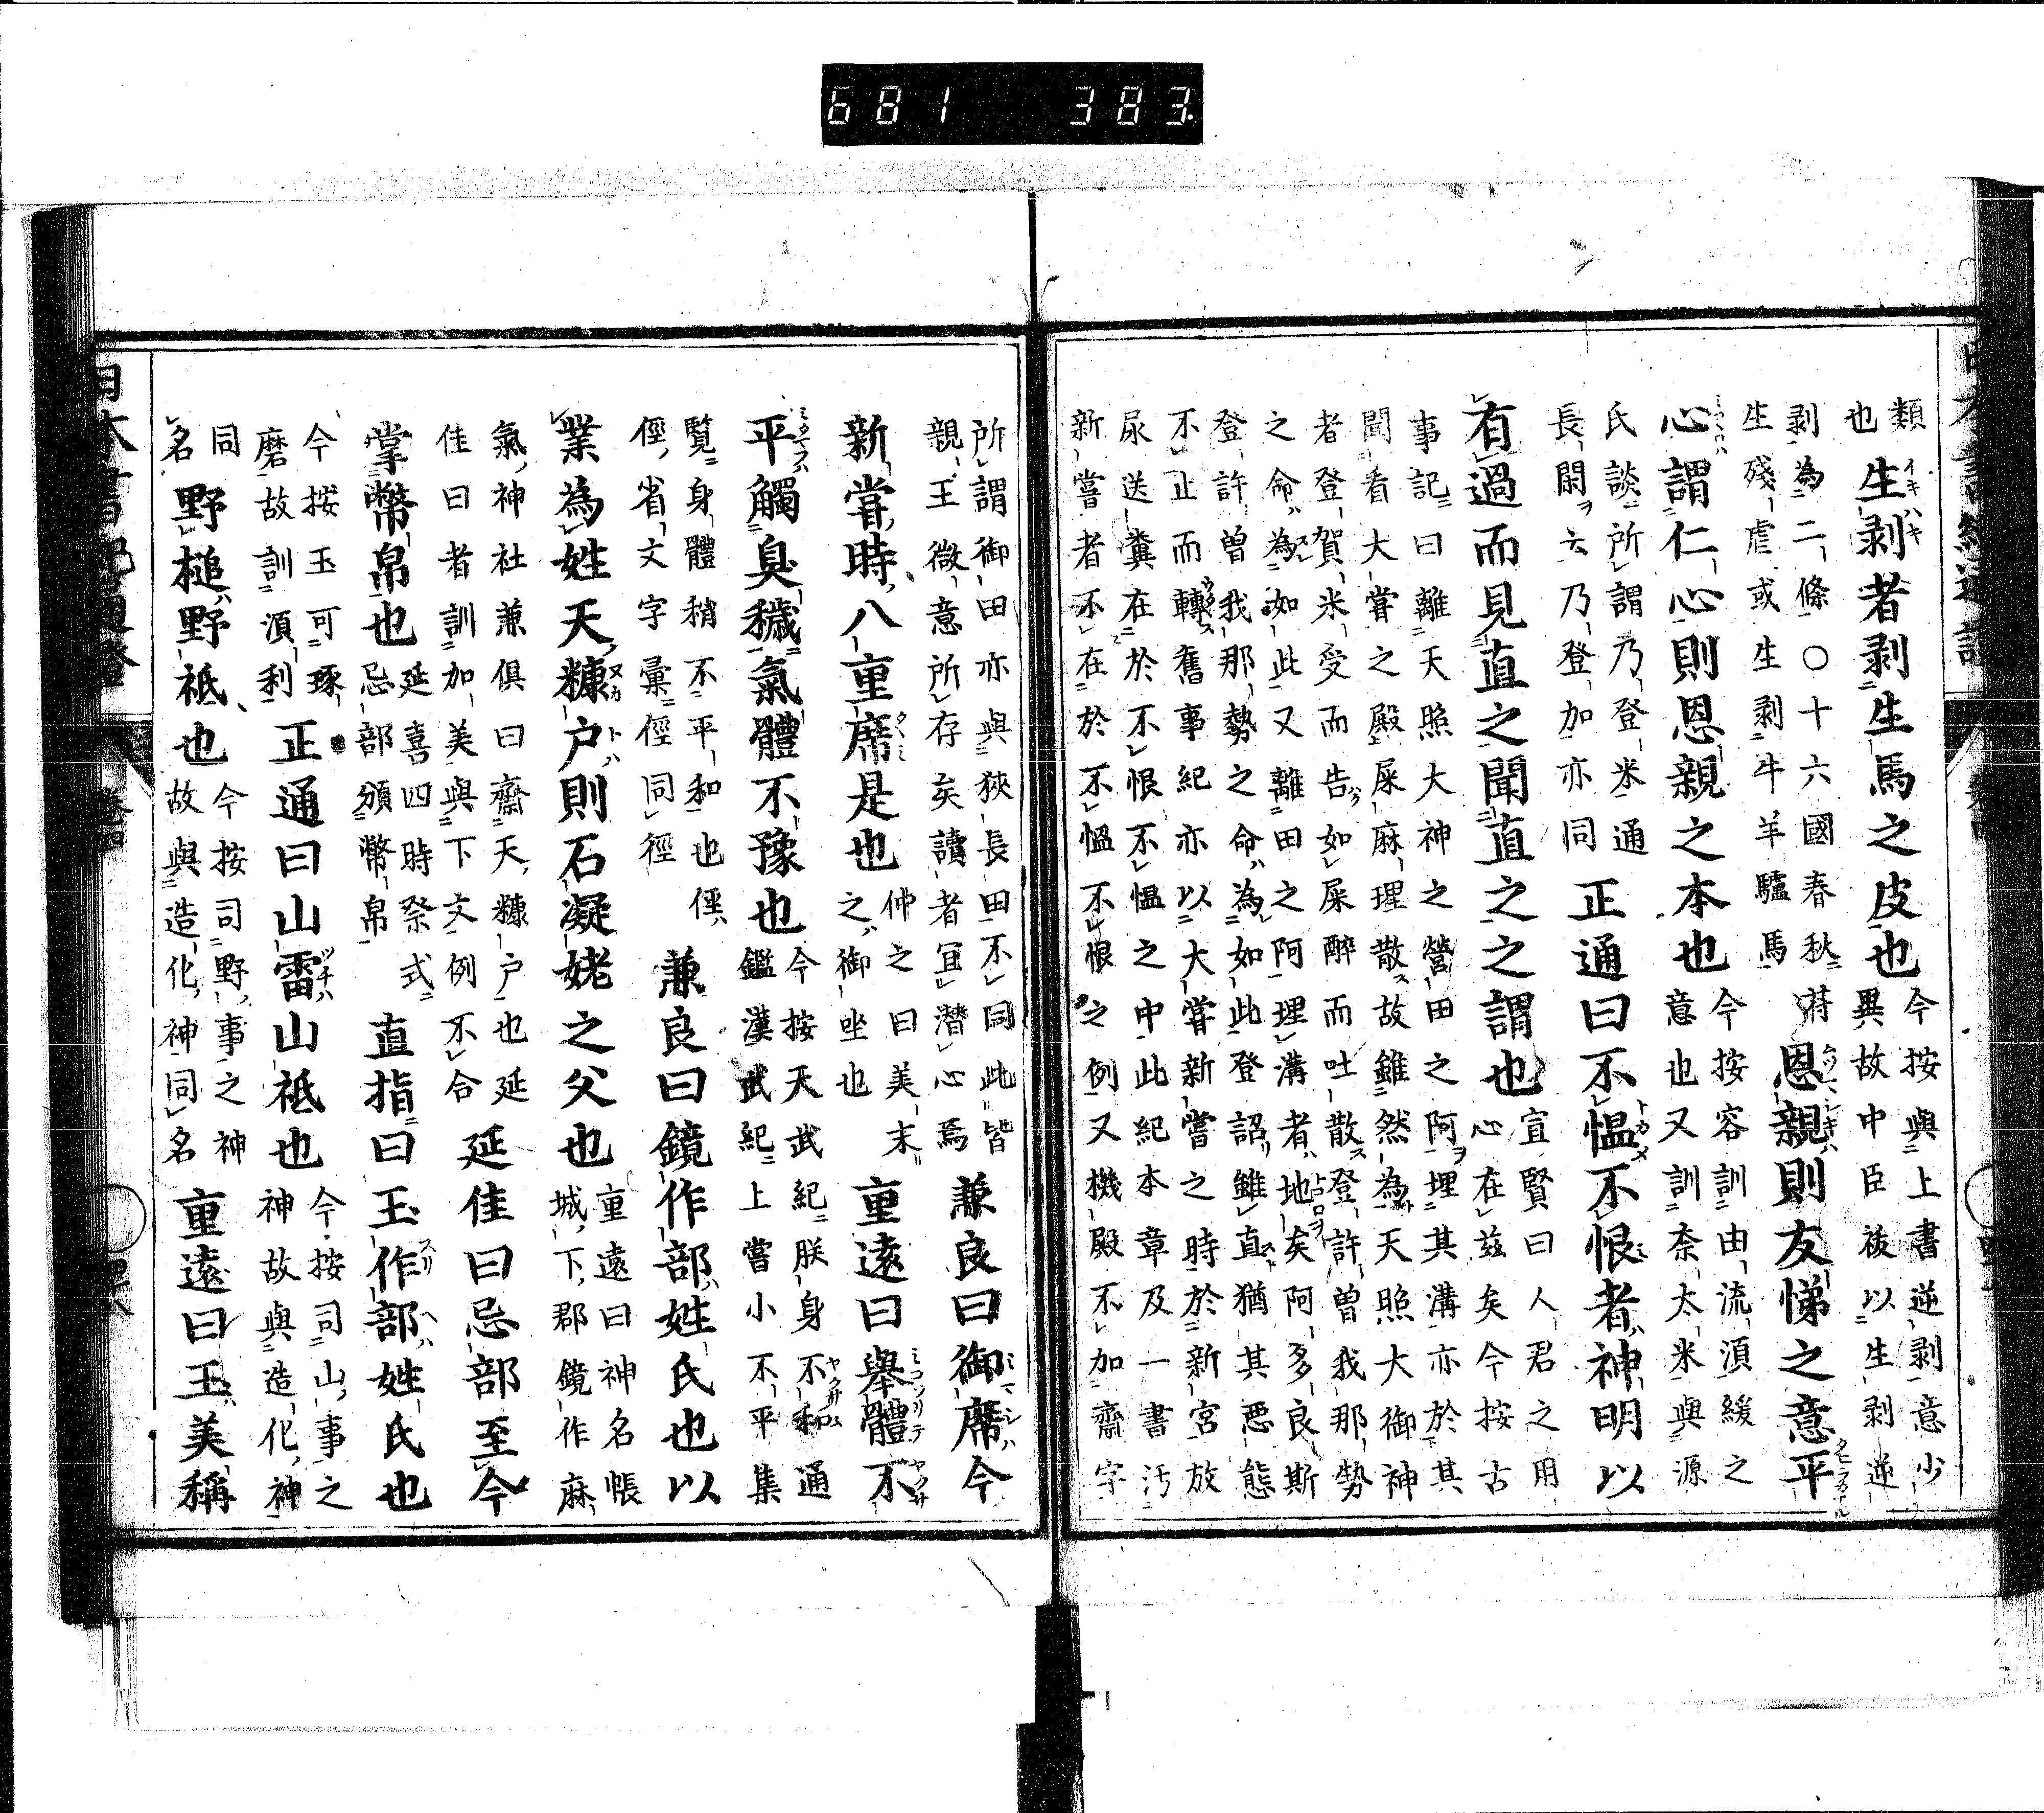 類
也
生剥者剥生馬之皮也
今按與上書逆剥意少
異故中臣祓以生剥逆
剥為二條〇十六國春秋蒋
生殘虐或生剥牛羊驢馬
恩親則友悌之意平
心謂仁心則恩親之本也
今按容訓由流湏緩之
意也又訓奈太米與源
氏談所謂乃登米通
長閑ヲ云乃登加亦同
正通曰不慍不恨者神明以
有過而見直之聞直之之謂也
宜賢曰人君之用
心在茲矣今按古
事記曰離天照大神之營田之阿埋其溝亦於其
聞看大嘗之殿屎麻理散故雖然為天照大御神
者登賀米受而告如屎醉而吐散登許曽我那勢
之命為如此又離田之阿埋溝者地矣阿多良斯
登許曽我那勢之命為如此登詔雖直猶其悪態
不止而轉舊事紀亦以大嘗新嘗之時於新宮放
尿送糞在於不恨不慍之中此紀本章及一書汚
新嘗者不在於不慍不恨之例又機殿不加齋字
所謂御田亦與狹長田不同此皆
親王微意所存矣讀者冝潜心焉
兼良曰御席今
新嘗時八重席是也
仲之曰美末
之御坐也
重遠曰舉體不
平觸臭穢氣體不豫也
今按天武紀朕身不和通
鑑漢武紀上嘗小不平集
覧身體稍不平和也俓
俓省文字彙俓同徑
兼良曰鏡作部姓氏也以
業為姓天糠戸則石凝姥之父也
重遠曰神名帳
城下郡鏡作麻
氣神社兼俱曰齋天糠戸也延
佳曰者訓加美與下文例不合
延佳曰忌部至今
掌幣帛也
延喜四時祭式
忌部頒幣帛
直指曰玉作部姓氏也
今按玉可琢
磨故訓湏利
正通曰山雷山祇也
今按司山事之
神故與造化神
同
名
野槌野祇也
今按司野事之神
故與造化神同名
重遠曰玉美稱
681 383